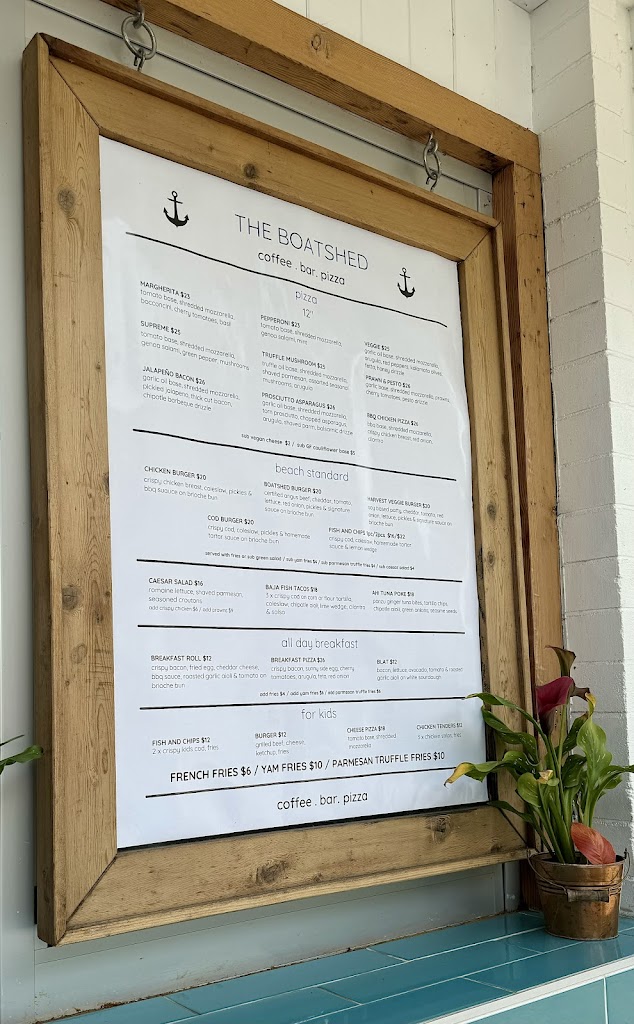 THE BOATSHED
coffee . bar. pizza
pizza
12"
MARGHERITA $23
tomato base, shredded mozzarella,
bocconcini, cherry tomatoes, basil
SUPREME $25
tomato base, shredded mozzarella,
genoa salami, green pepper, mushrooms
JALAPEÑO BACON $26
garlic oil base, shredded mozzarella,
pickled jalapeno, thick cut bacon,
chipotle barbeque drizzle
PEPPERONI $23
tomato base, shredded mozzarella,
genoa salami, mini
TRUFFLE MUSHROOM $25
truffle oil base, shredded mozzarella,
shaved parmesan, assorted seasonal
mushrooms, arugula
PROSCIUTTO ASPARAGUS $26
garlic oil base, shredded mozzarella,
torn prosciutto, chopped asparagus,
arugula, shaved parm, balsamic drizzle
VEGGIE $25
garlic oil base, shredded mozzarella,
arugula, red peppers, kalamata olives,
feta, honey drizzle
PRAWN & PESTO $26
garlic base, shredded mozzarella, prawns,
cherry tomatoes, pesto drizzle
BBQ CHICKEN PIZZA $26
bbq base, shredded mozzarella,
crispy chicken breast, red onion,
cilantro
sub vegan cheese $2 / sub GF cauliflower base $5
beach standard
CHICKEN BURGER $20
crispy chicken breast, coleslaw, pickles &
bbq suauce on brioche bun
BOATSHED BURGER $20
certified angus beef, cheddar, tomato,
lettuce, red onion, pickles & signature
sauce on brioche bun
HARVEST VEGGIE BURGER $20
soy based patty, cheddar, tomato, red
onion, lettuce, pickles & signature sauce on
brioche bun
COD BURGER $20
crispy cod, coleslaw, pickles & homemade
tartar sauce on brioche bun
FISH AND CHIPS 1pc/2pcs $16/$22
crispy cod, coleslaw, homemade tartar
sauce & lemon wedge
served with fries or sub green salad / sub yam fries $4 / sub parmesan truffle fries $4 / sub caesar salad $4
CAESAR SALAD $16
romaine lettuce, shaved parmesan,
seasoned croutons
add crispy chicken $6 / add prawns $9
BAJA FISH TACOS $18
3 x crispy cod on corn or flour tortilla,
coleslaw, chipotle aioli, lime wedge, cilantro
& salsa
AHI TUNA POKE $18
ponzu ginger tuna bites, tortilla chips,
chipotle aioli, green onions, sesame seeds
all day breakfast
BREAKFAST ROLL $12
crispy bacon, fried egg, cheddar cheese,
bbq sauce, roasted garlic aioli & tomato on
brioche bun
BREAKFAST PIZZA $25
crispy bacon, sunny side egg, cherry
tomatoes, arugula, feta, red onion
BLAT $12
bacon, lettuce, avocado, tomato & roasted
garlic aioli on white sourdough
add fries $4 / add yam fries $6 / add parmesan truffle fries $6
for kids
FISH AND CHIPS $12
2 x crispy kids cod, fries
BURGER $12
grilled beef, cheese,
ketchup, fries
CHEESE PIZZA $18
tomato base, shredded
mozzarella
CHICKEN TENDERS $12
3 x chicken strips, fries
FRENCH FRIES $6 / YAM FRIES $10 / PARMESAN TRUFFLE FRIES $10
coffee . bar. pizza